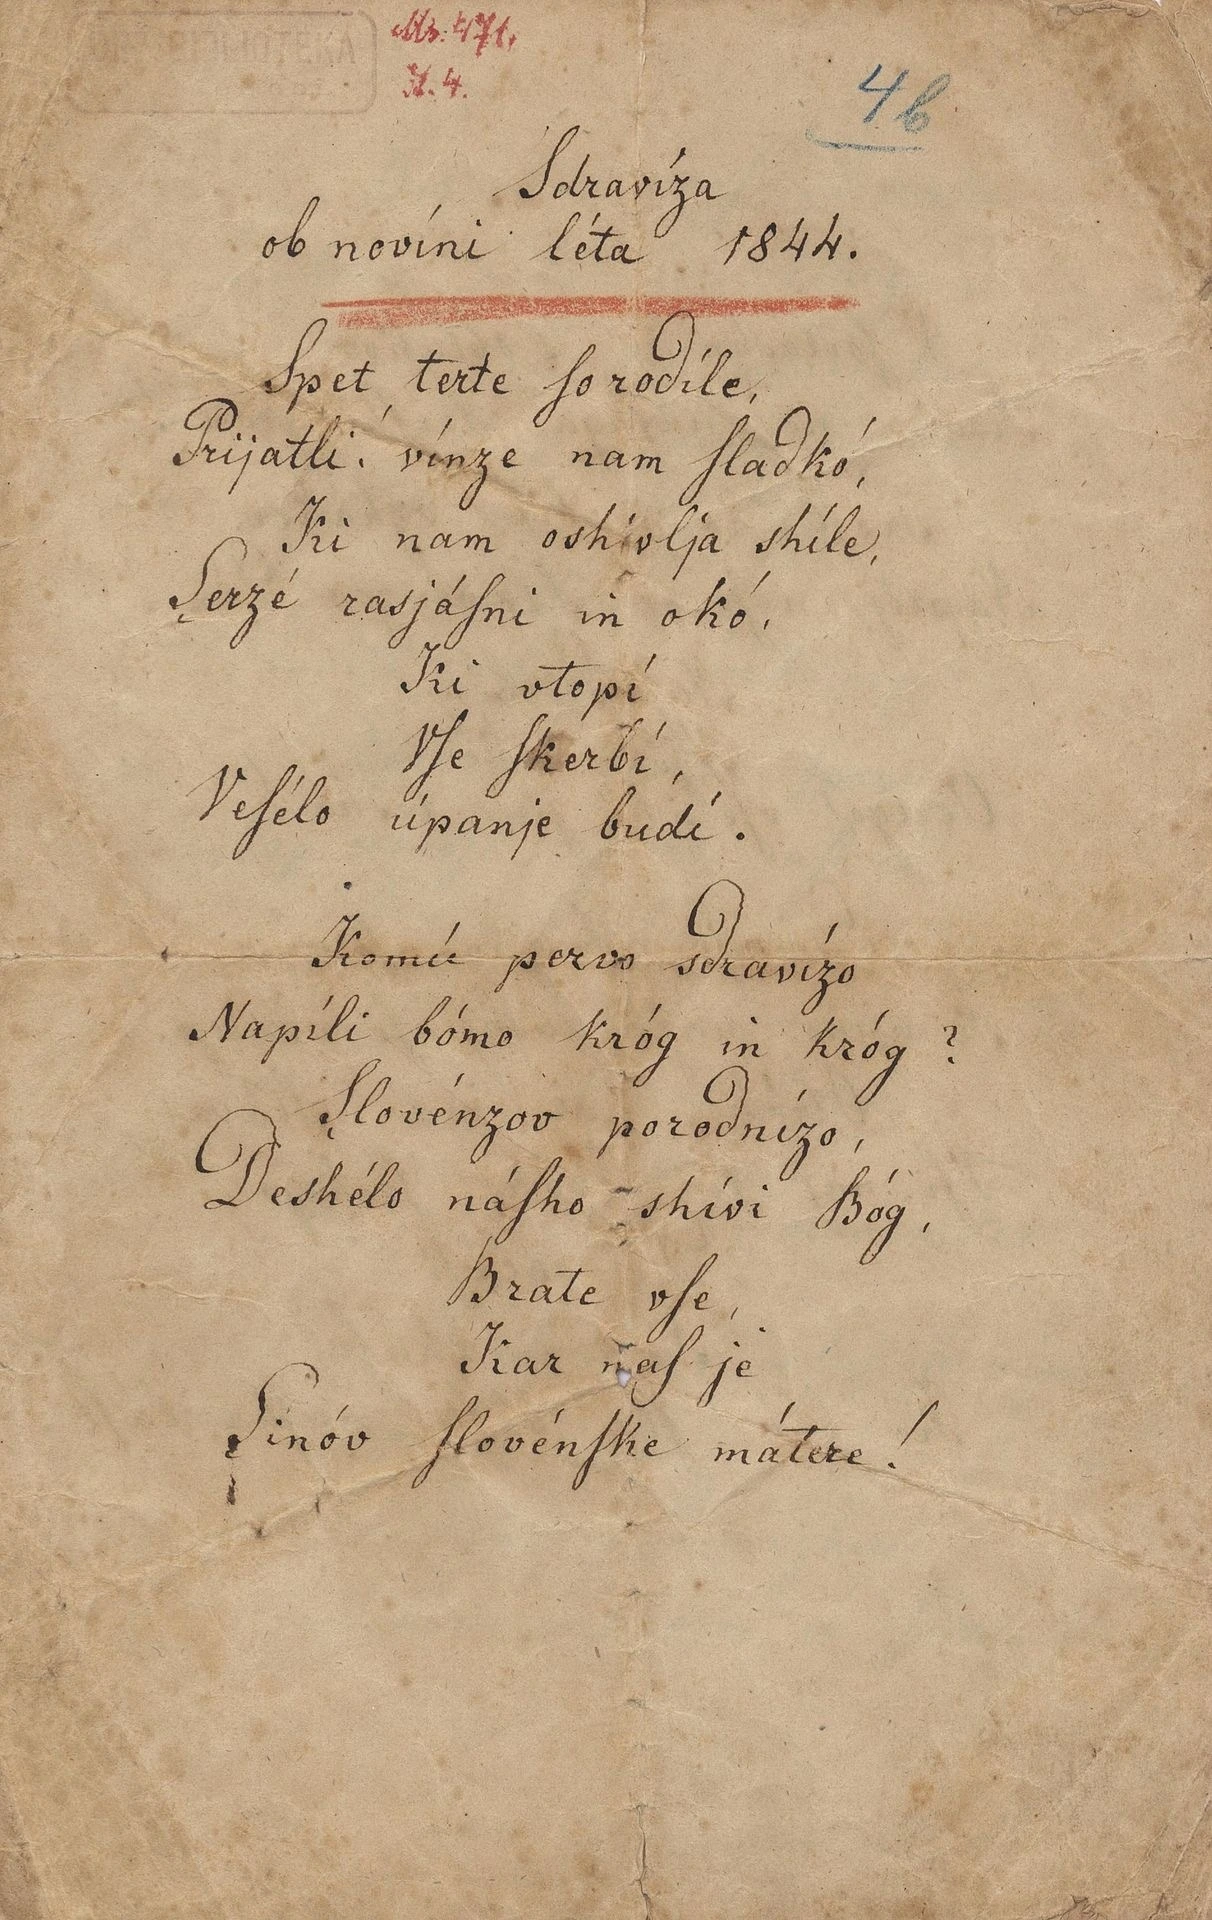 OTEKA
Ms. 471.
N. 4.
4b
Sdravíza
ob novíni léta 1844.
Spet terte ſo rodíle,
Prijatli! vínze nam ſladkó,
Ki nam oshivlja shíle,
Serzé rasjáſni in okó,
Ki vtopí
Vſe ſkerbí,
Veſélo úpanje budí.
Komú pervo sdravízo
Napíli bómo króg in króg?
Slovénzov porodnízo,
Deshélo náſho shívi Bóg,
Brate vſe,
Kar naſ je
Sinóv ſlovénſke mátere!